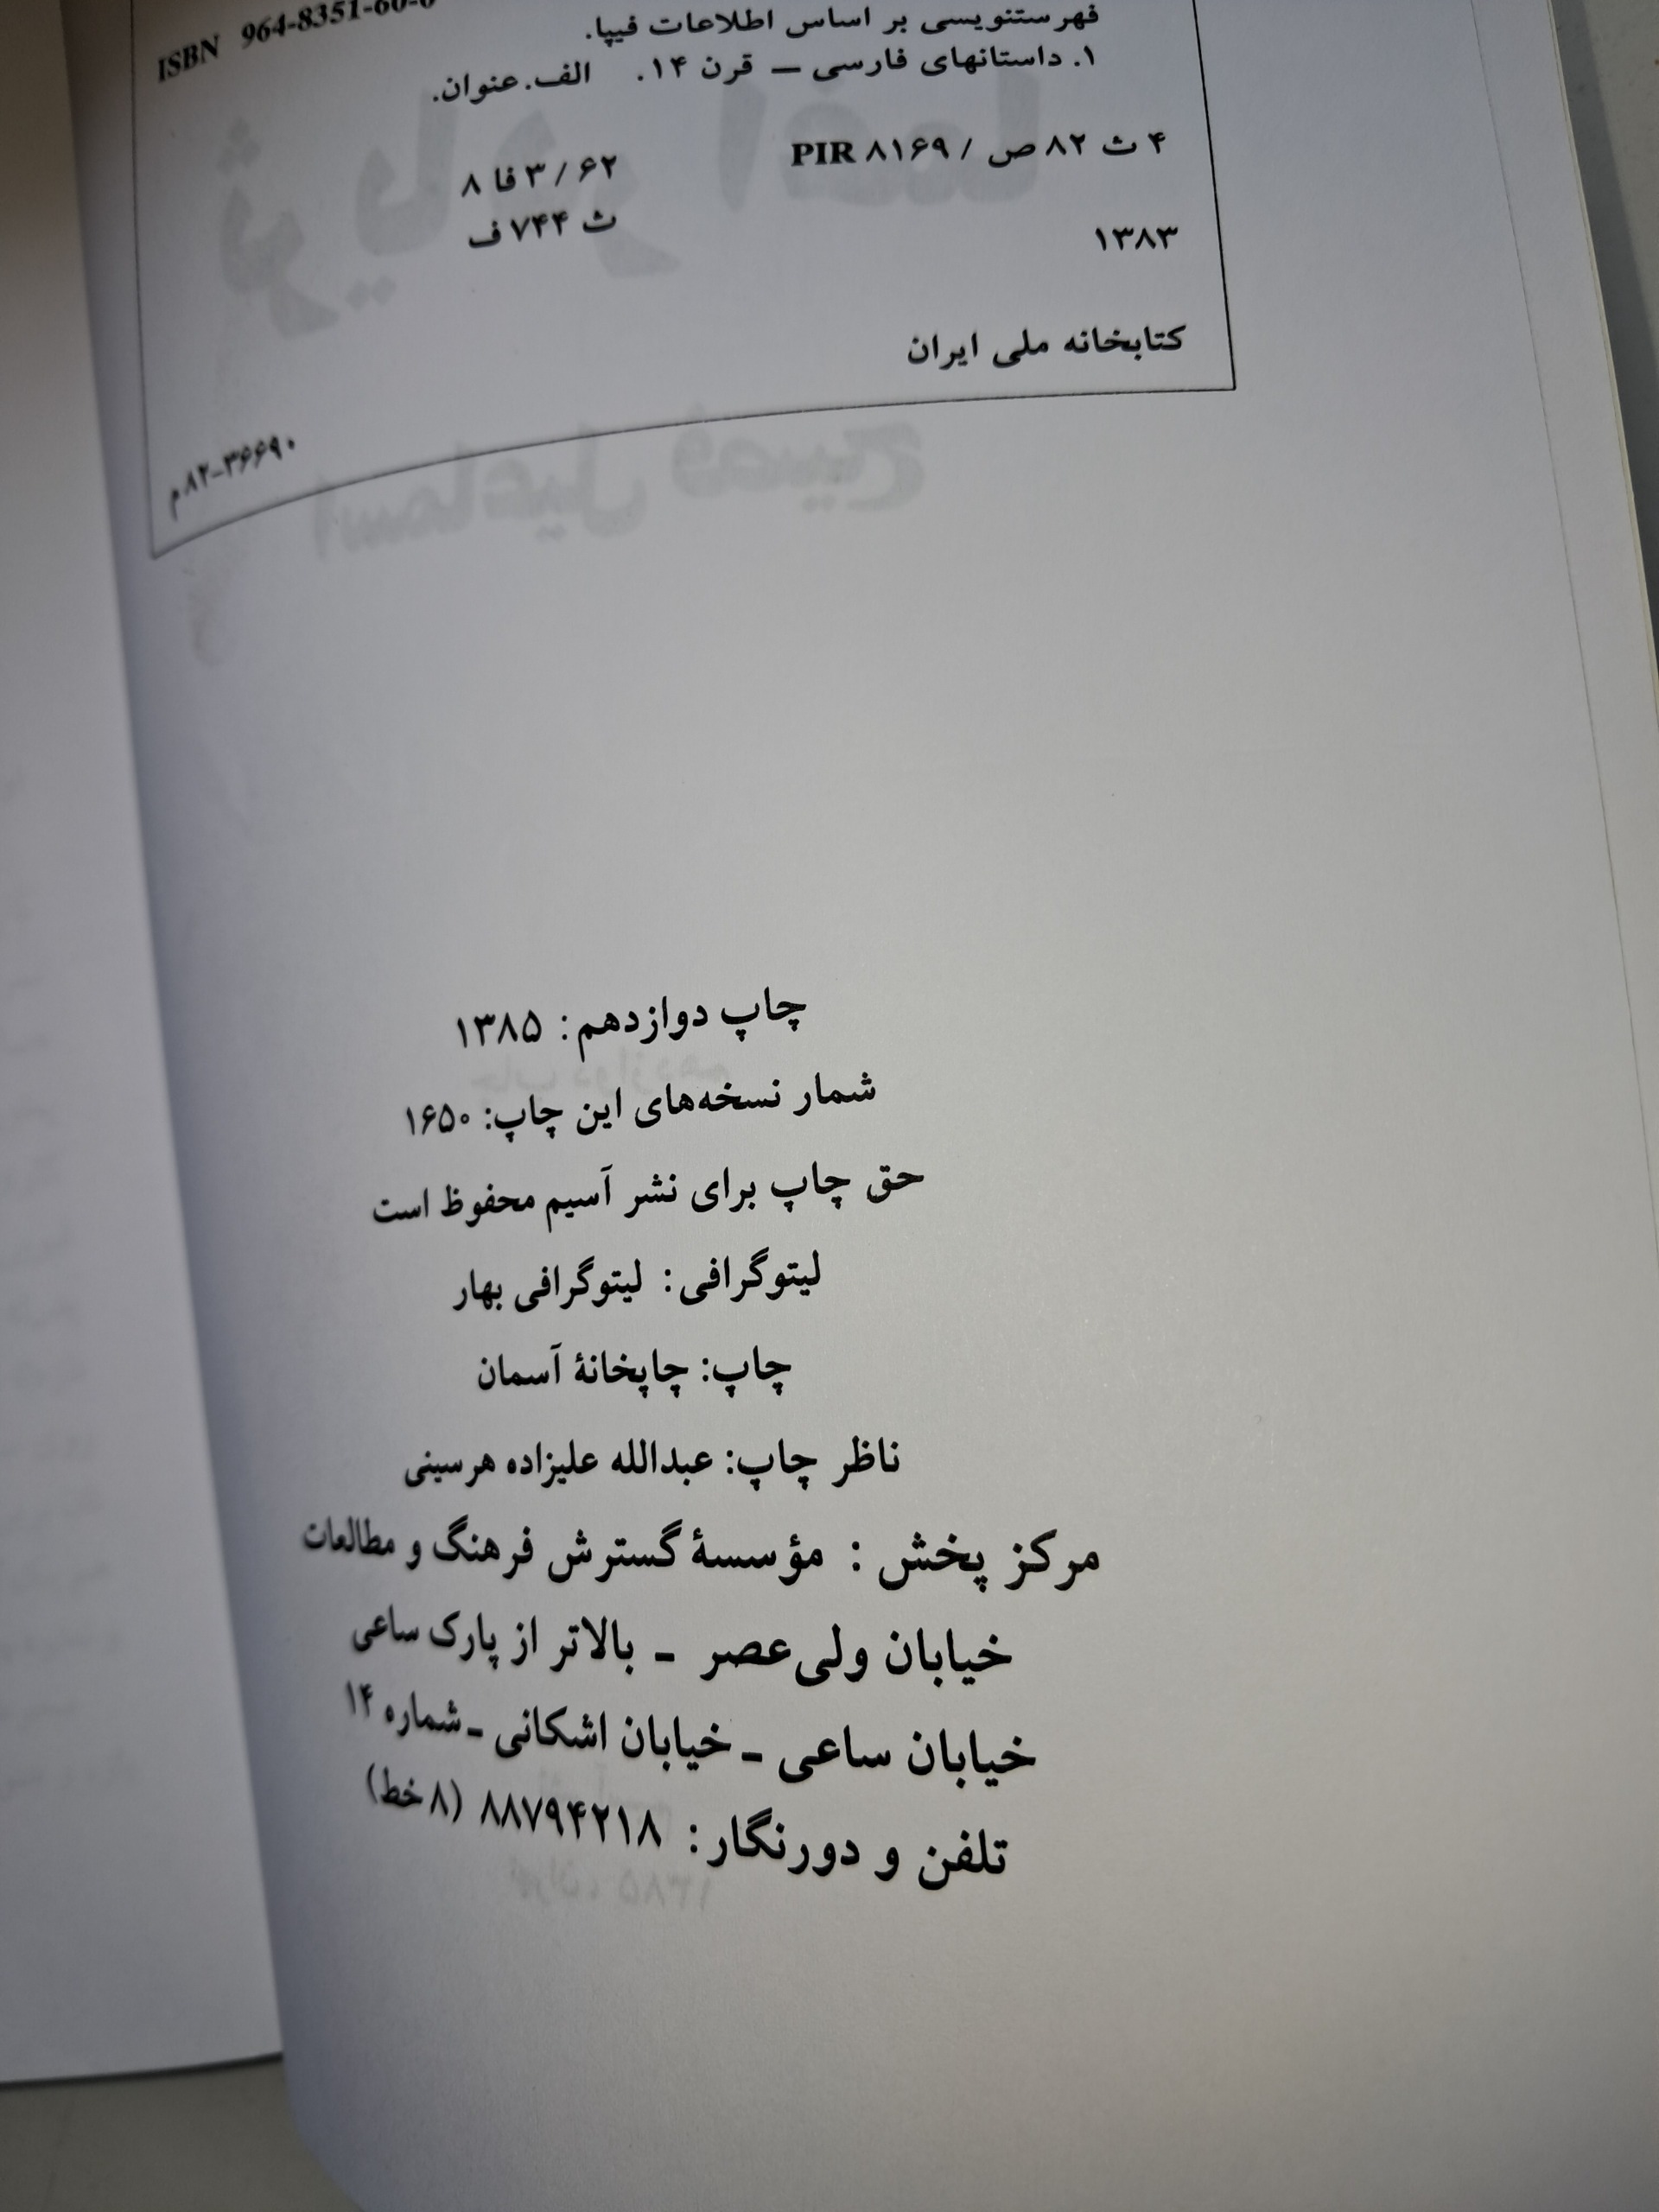 ISBN 964-8351-60-6
فهرستنویسی بر اساس اطلاعات فیپا.
۱. داستانهای فارسی — قرن ۱۴. الف.عنوان.
۴ ث ۸۲ ص / ۸۱۶۹ PIR
۶۲ / ۳ فا ۸
ث ۷۴۴ ف
۱۳۸۳
کتابخانه ملی ایران
۳۶۶۹۰-۸۲م
چاپ دوازدهم: ۱۳۸۵
شمار نسخه‌های این چاپ: ۱۶۵۰
حق چاپ برای نشر آسیم محفوظ است
لیتوگرافی: لیتوگرافی بهار
چاپ: چاپخانهٔ آسمان
ناظر چاپ: عبدالله علیزاده هرسینی
مرکز پخش : مؤسسهٔ گسترش فرهنگ و مطالعات
خیابان ولی‌عصر - بالاتر از پارک ساعی
خیابان ساعی - خیابان اشکانی - شماره ۱۴
تلفن و دورنگار: ۸۸۷۹۴۲۱۸ (۸ خط)